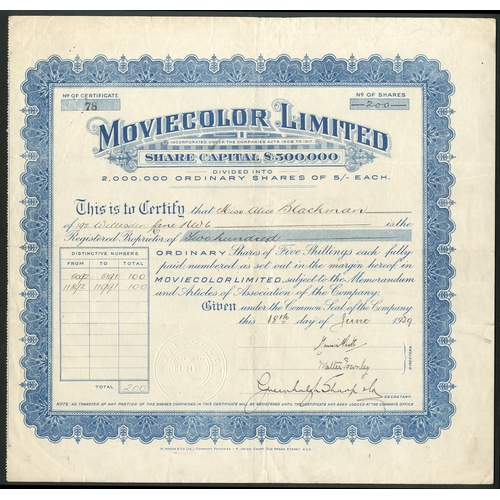 No OF CERTIFICATE
78
No OF SHARES
200
MOVIECOLOR LIMITED
INCORPORATED UNDER THE COMPANIES ACTS 1908 TO 1917
SHARE CAPITAL £500,000
DIVIDED INTO
2,000,000 ORDINARY SHARES OF 5/- EACH.
This is to Certify that Miss Alice Blackman
of 192 Willesden Lane NW6 is the
Registered Proprietor of Two hundred
ORDINARY Shares of Five Shillings each fully
paid, numbered as set out in the margin hereof in
MOVIECOLOR LIMITED, subject to the Memorandum
and Articles of Association of the Company.
Given under the Common Seal of the Company
this 18th day of June 1929
DISTINCTIVE NUMBERS
FROM TO TOTAL
100
100
TOTAL 200
Walter Townley
DIRECTORS.
SECRETARY.
NOTE: NO TRANSFER OF ANY PORTION OF THE SHARES COMPRISED IN THIS CERTIFICATE WILL BE REGISTERED UNTIL THE CERTIFICATE HAS BEEN LODGED AT THE COMPANY'S OFFICE.